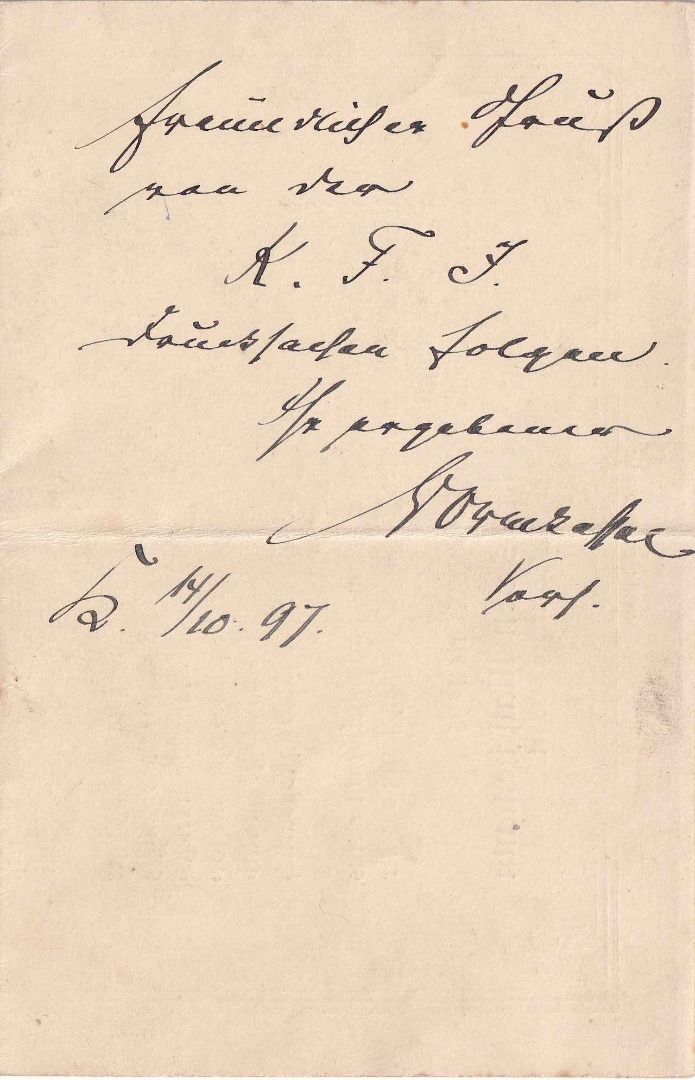 Freundlicher Gruß
von der
K. F. J.
Drucksachen folgen.
Ihr ergebener
Vors.
14/10. 97.